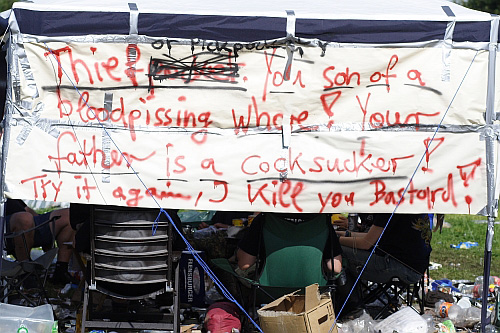 of Pickpocket
Thief! You son of a
bloodpissing whore! Your
father is a cocksucker!
Try it again, I kill you Bastard!